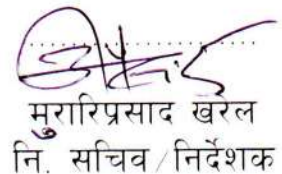 मुरारिप्रसाद खरेल
नि. सचिव/निर्देशक